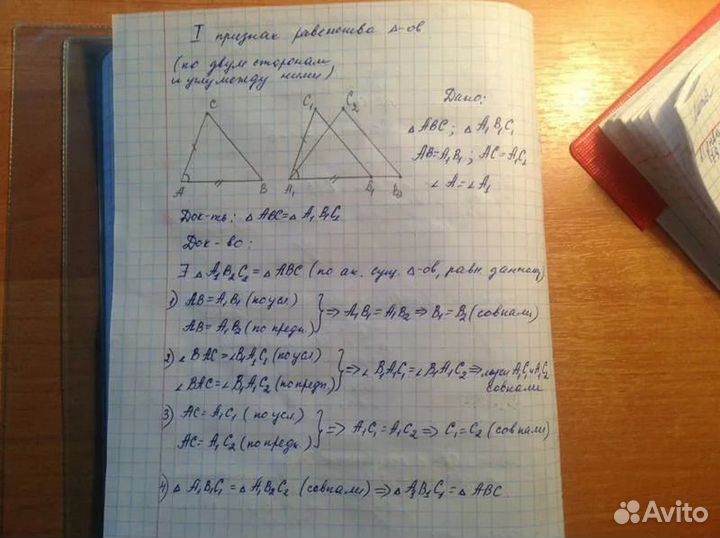 I признак равенства Δ-ов
(по двум сторонам
и углу между ними)
C
A
B
C₁
C₂
A₁
B₁
B₂
Дано:
Δ ABC; Δ A₁B₁C₁
AB=A₁B₁; AC=A₁C₁
∠A=∠A₁
Док-ть: Δ ABC=Δ A₁B₁C₁
Док-во:
∃ Δ A₁B₂C₂=Δ ABC (по ак. сущ. Δ-ов, равн. данному)
1) AB=A₁B₁ (по усл)
AB=A₁B₂ (по предп.)
} ⇒ A₁B₁=A₁B₂ ⇒ B₁=B₂ (совпали)
2) ∠BAC=∠B₁A₁C₁ (по усл)
∠BAC=∠B₁A₁C₂ (по предп)
} ⇒ ∠B₁A₁C₁=∠B₁A₁C₂ ⇒ лучи A₁C₁ и A₁C₂
совпали
3) AC=A₁C₁ (по усл)
AC=A₁C₂ (по предп)
} ⇒ A₁C₁=A₁C₂ ⇒ C₁=C₂ (совпали)
4) Δ A₁B₁C₁=Δ A₁B₂C₂ (совпали) ⇒ Δ A₁B₁C₁=Δ ABC.
Avito